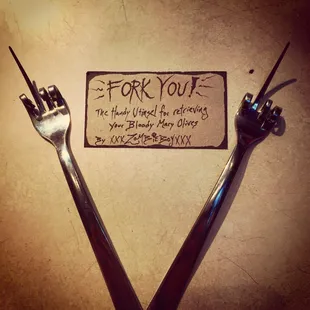 FORK YOU!
The Handy Utinsel for retrieving
your Bloody Mary Olives
By XXXZoMBiEBoyXXX